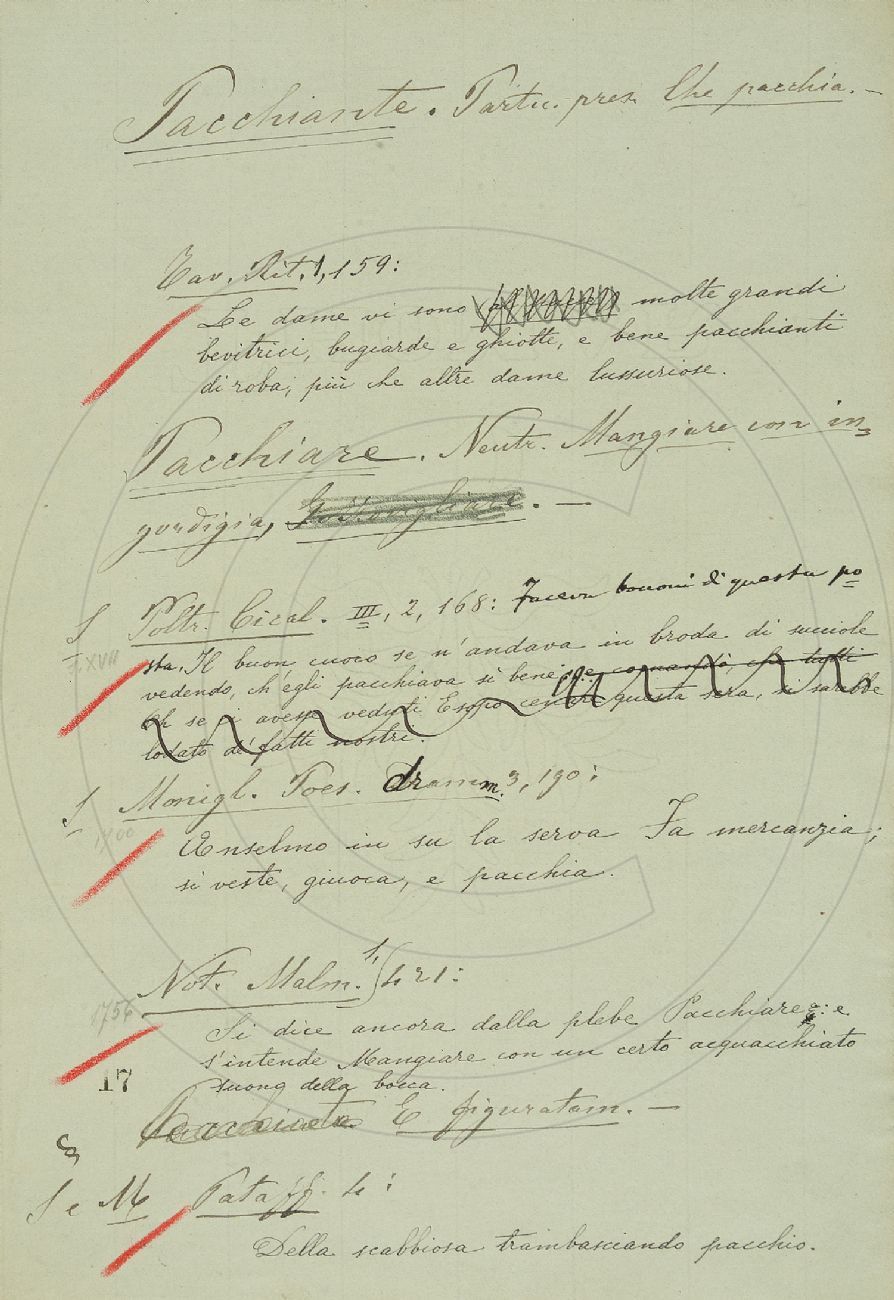 Pacchiante. Partic. pres. Che pacchia. —
Tav. Rit. 1, 159:
Le dame vi sono molte grandi
bevitrici, bugiarde e ghiotte, e bene pacchianti
di roba, più che altre dame lussuriose.
Pacchiare. Neutr. Mangiare con in=
gordigia, . —
S Poltr. Cical. III, 2, 168: Faceva bocconi di questa po=
F. XVII sta. Il buon cuoco se n'andava in broda di succiole
vedendo, ch'egli pacchiava sì bene, e comandò, che tutti
Ch se i avesse veduti Esopo cenare questa sera, si sarebbe
lodato de' fatti nostri.
S Monigl. Poes. dramm. 3, 190:
1700
Anselmo in su la serva Fa mercanzia;
si veste, giuoca, e pacchia.
Not. Malm. 1, 421:
1756
Si dice ancora dalla plebe Pacchiare: e
s'intende Mangiare con un certo acquacchiato
suono della bocca.
17
E figuratam. —
§
S e M Pataff. 4:
Della scabbiosa trambasciando pacchio.